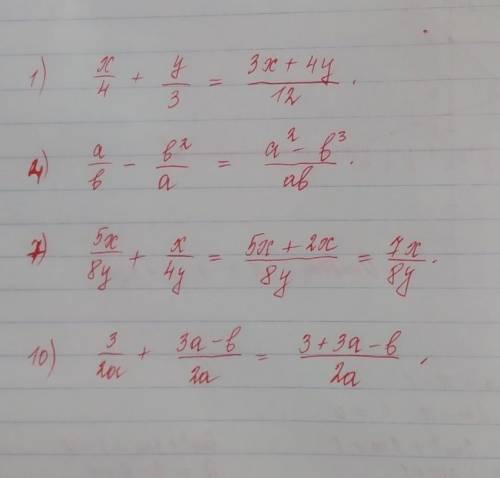 1) x/4 + y/3 = (3x + 4y)/12.
4) a/в - в²/a = (a² - в³)/aв.
7) 5x/8y + x/4y = (5x + 2x)/8y = 7x/8y.
10) 3/2a + (3a - в)/2a = (3 + 3a - в)/2a,